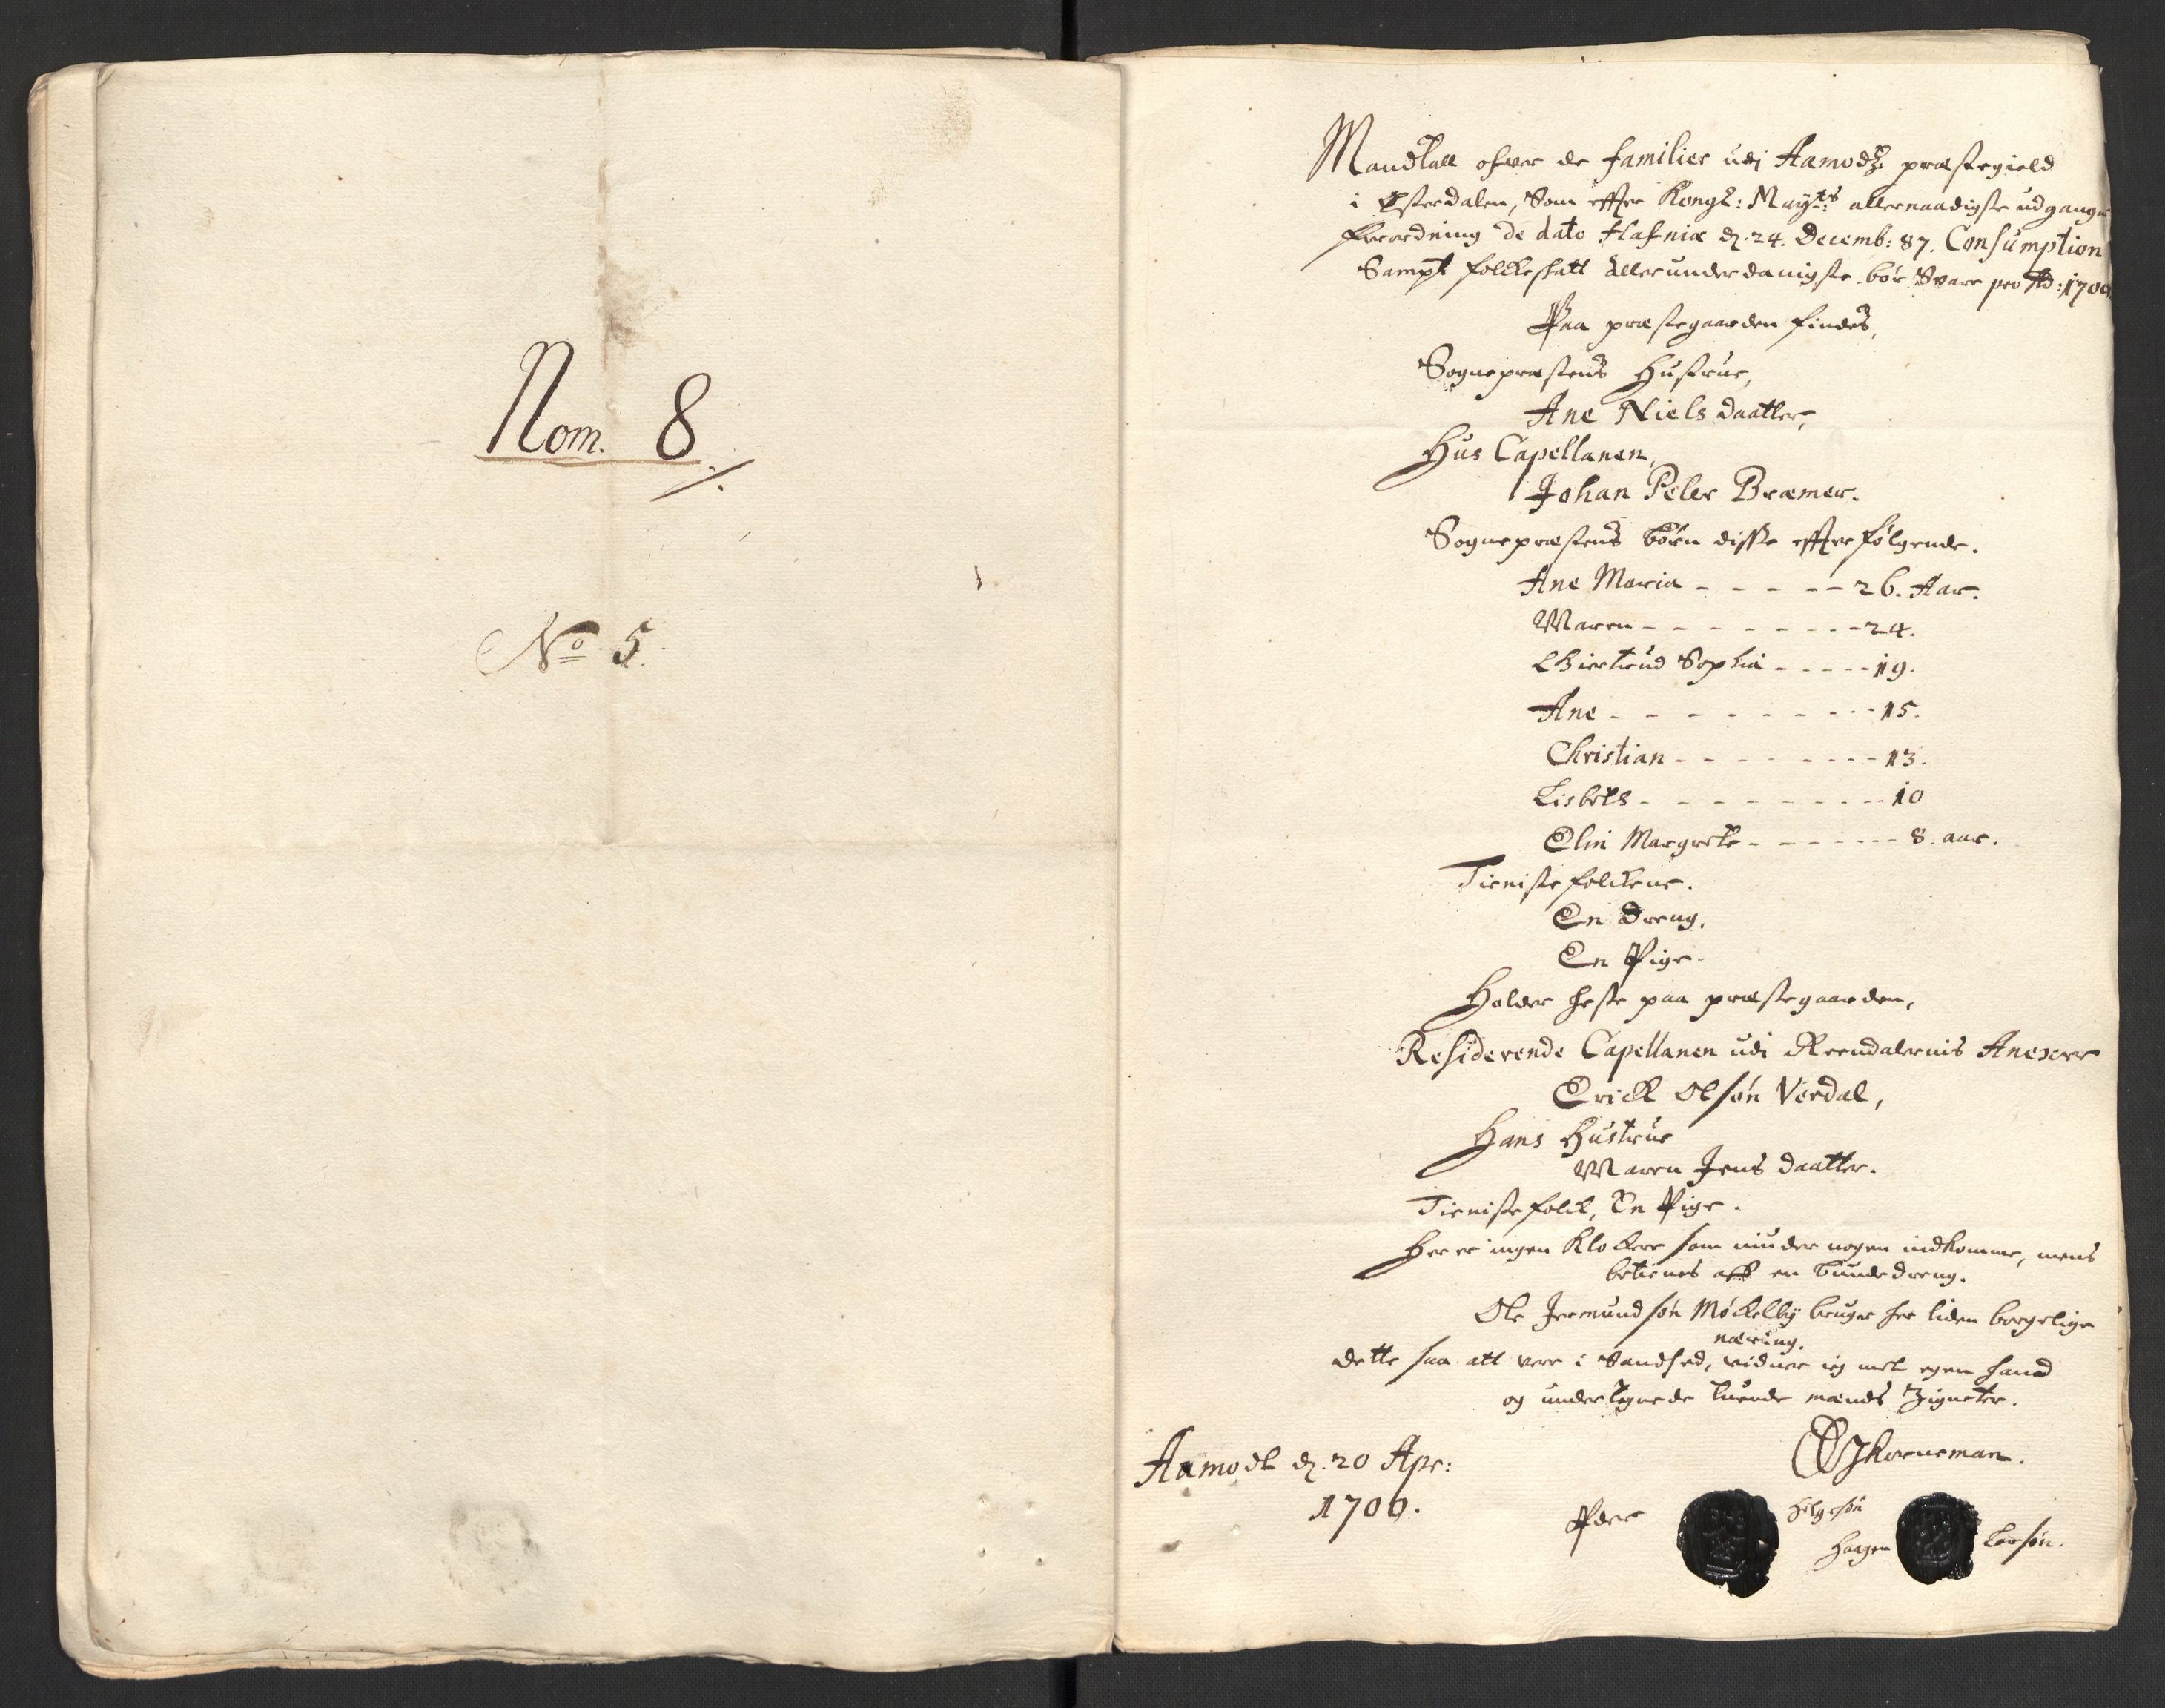 Nom. 8
No 5.
Mandtall ofver de familier udj Aamodz præstegield
i Østerdalen, Som effter Kongl: Mayts allernaadigste udgangne
forordning de dato Hafniæ d. 24. Decemb: 87. Consumption
Sampt folckeskatt allerunderdanigste bør Svare pro Ao: 1700
Paa præstegaarden findes,
Sognepræstens Hustrue,
Ane Niels daatter,
Hus Capellanen,
Johan Peter Bræmer.
Sognepræstens børn disse effterfølgende.
Ane Maria - - - - - 26. Aar.
Maren - - - - - - - 24.
Giertrud Sophia - - - - - 19.
Ane - - - - - - - - 15.
Christian - - - - - - - 13.
Lisbeth - - - - - - - - 10
Elin Margrete - - - - - - 8. aar.
Tienistefolckene.
En Dreng.
En Pige.
Holder heste paa præstegaarden,
Residerende Capellanen udi Rendalernis Anexer
Erick Olsøn Verdal,
Hans Hustrue
Maren Jens daatter.
Tienistefolck, En Pige.
Her er ingen Klockere som niuder nogen indkomme, mens
betienes aff en bunde dreng.
Ole Jermundsøn Møckelby bruger her liden borgelige
næring.
dette saa att vere i Sandhed, vidner ieg met egen haand
og undertegnede tuende mænds Zigneter.
Aamodt d. 20 Apr:
1700.
Peder Helgesøn
Haagen Larsøn.